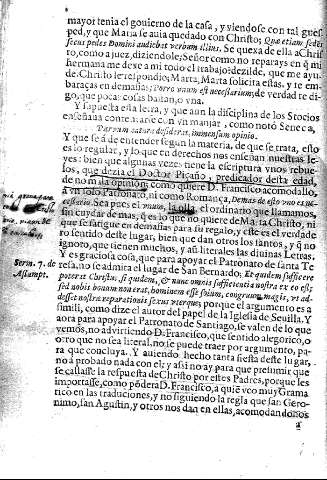 mayor tenia el gouierno de la casa, y viendose con tal gues-
ped, y que Maria se auia quedado con Christo; Quæ etiam sedens
secus pedes Domini audiebat verbum illius. Se quexa della a Chris-
to, como a juez, diziendole; Señor como no reparays en q̃ mi
hermana me dexe a mi todo el trabajo: dezilde, que me ayu-
de. Christo le respondio; Marta, Marta solicita estas, y te em-
baraças en demasias; Porro vnum est necessarium; de verdad te di-
go, que pocas cosas bastan, o vna.
Y supuesta esta letra, y que aun la disciplina de los Stocios
enseñaua contentarse con vn manjar, como notò Seneca,
Paruum cature desiderat, immensum opinio.
Y que se à de entender segun la materia, de que se trata, esto
es lo regular, y lo que en derechos nos enseñan nuestras le-
yes: bien que algunas vezes tiene la escriptura vnos rebue-
los, que dezia el Doctor Piçaño, predicador desta edad,
de no mala opinion; como quiere D. Francisco acomodallo,
à vn solo Patronato, ni como Romança, Demas de esto vno es ne-
cessario. Sea pues el vnum, la olla, el ordinario que llamamos,
sin cuydar de mas, q̃ es lo que no quiere de Marta Christo, ni
que se fatigue en demasias para su regalo, y este es el verdade
ro sentido deste lugar, bien que dan otros los santos, y q̃ no
ignoto, que tienen muchos, y aũ literales las diuinas Letras.
Y es graciosa cosa, que para apoyar el Patronato de santa Te
resa, no se admita el lugar de San Bernardo; Et quidem sufficere
poterat Christus, siquidem, & nunc omnis sufficientia nostra ex eo est;
sed nobis bonum non erat, hominem esse solum, congruum magis, vt ad-
esset nostræ reparationis sexus vterque, porque el argumento es a
simili, como dize el autor del papel de la Iglesia de Seuilla. Y
aora para apoyar el Patronato de Santiago, se valen de lo que
vemos, no aduirtiendo D. Francisco, que sentido alegorico, o
otro que no sea literal, no se puede traer por argumento, pa-
ra que concluya. Y auiendo hecho tanta fiesta deste lugar,
no à probado nada con el; y assi no ay para que presumir que
se callasse la respuesta de Christo por estes Padres, porque les
importasse, como põdera D. Francisco, à quiẽ veo muy Grama
tico en las traduciones, y no siguiendo la regla que san Gero-
nimo, san Agustin, y otros nos dan en ellas, acomodandonos
a
Serm. 7. de
Assumpt.